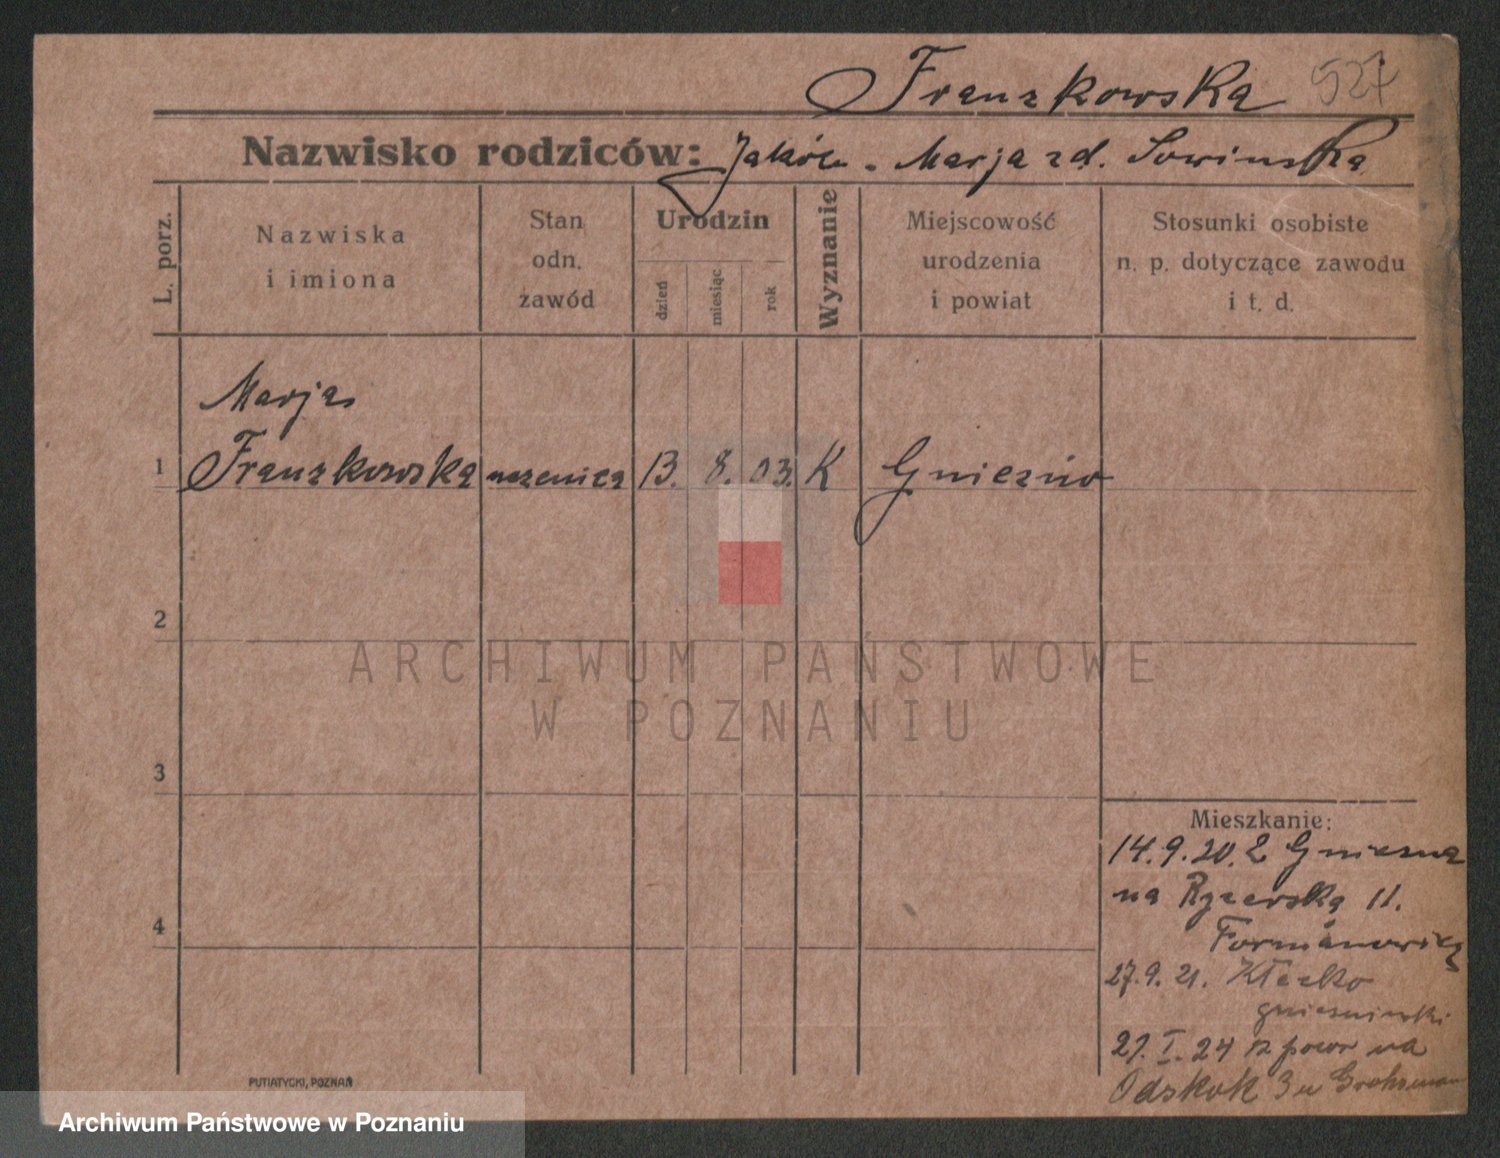 Franzkowska 527
Nazwisko rodziców: Jakób - Marja zd. Sowinska
L. porz.
Nazwiska
i imiona
Stan
odn.
zawód
Urodzin
dzień
miesiąc
rok
Wyznanie
Miejscowość
urodzenia
i powiat
Stosunki osobiste
n. p. dotyczące zawodu
i t. d.
Marja
1 Franzkowska uczenica 13. 8. 03. K Gniezno
2
ARCHIWUM PAŃSTWOWE
W POZNANIU
3
Mieszkanie:
14.9.20. z Gniezna
na Rycerską 11.
4
27.9.21. Kłecko
gnieznienski
27. I. 24 z powr na
Odskok 3 u
PUTIATYCKI, POZNAŃ
Archiwum Państwowe w Poznaniu